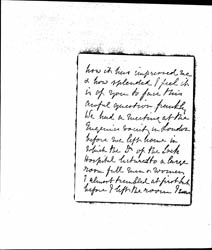 how it has impressed me
& how splendid I feel it
is of you to face this
awful question frankly
We had a meeting at the
Eugenics Society in London
before we left home in
which the Dr of the Lock
Hospital lectured to a large
room full men & women
I almost trembled at first but
before I left the room I